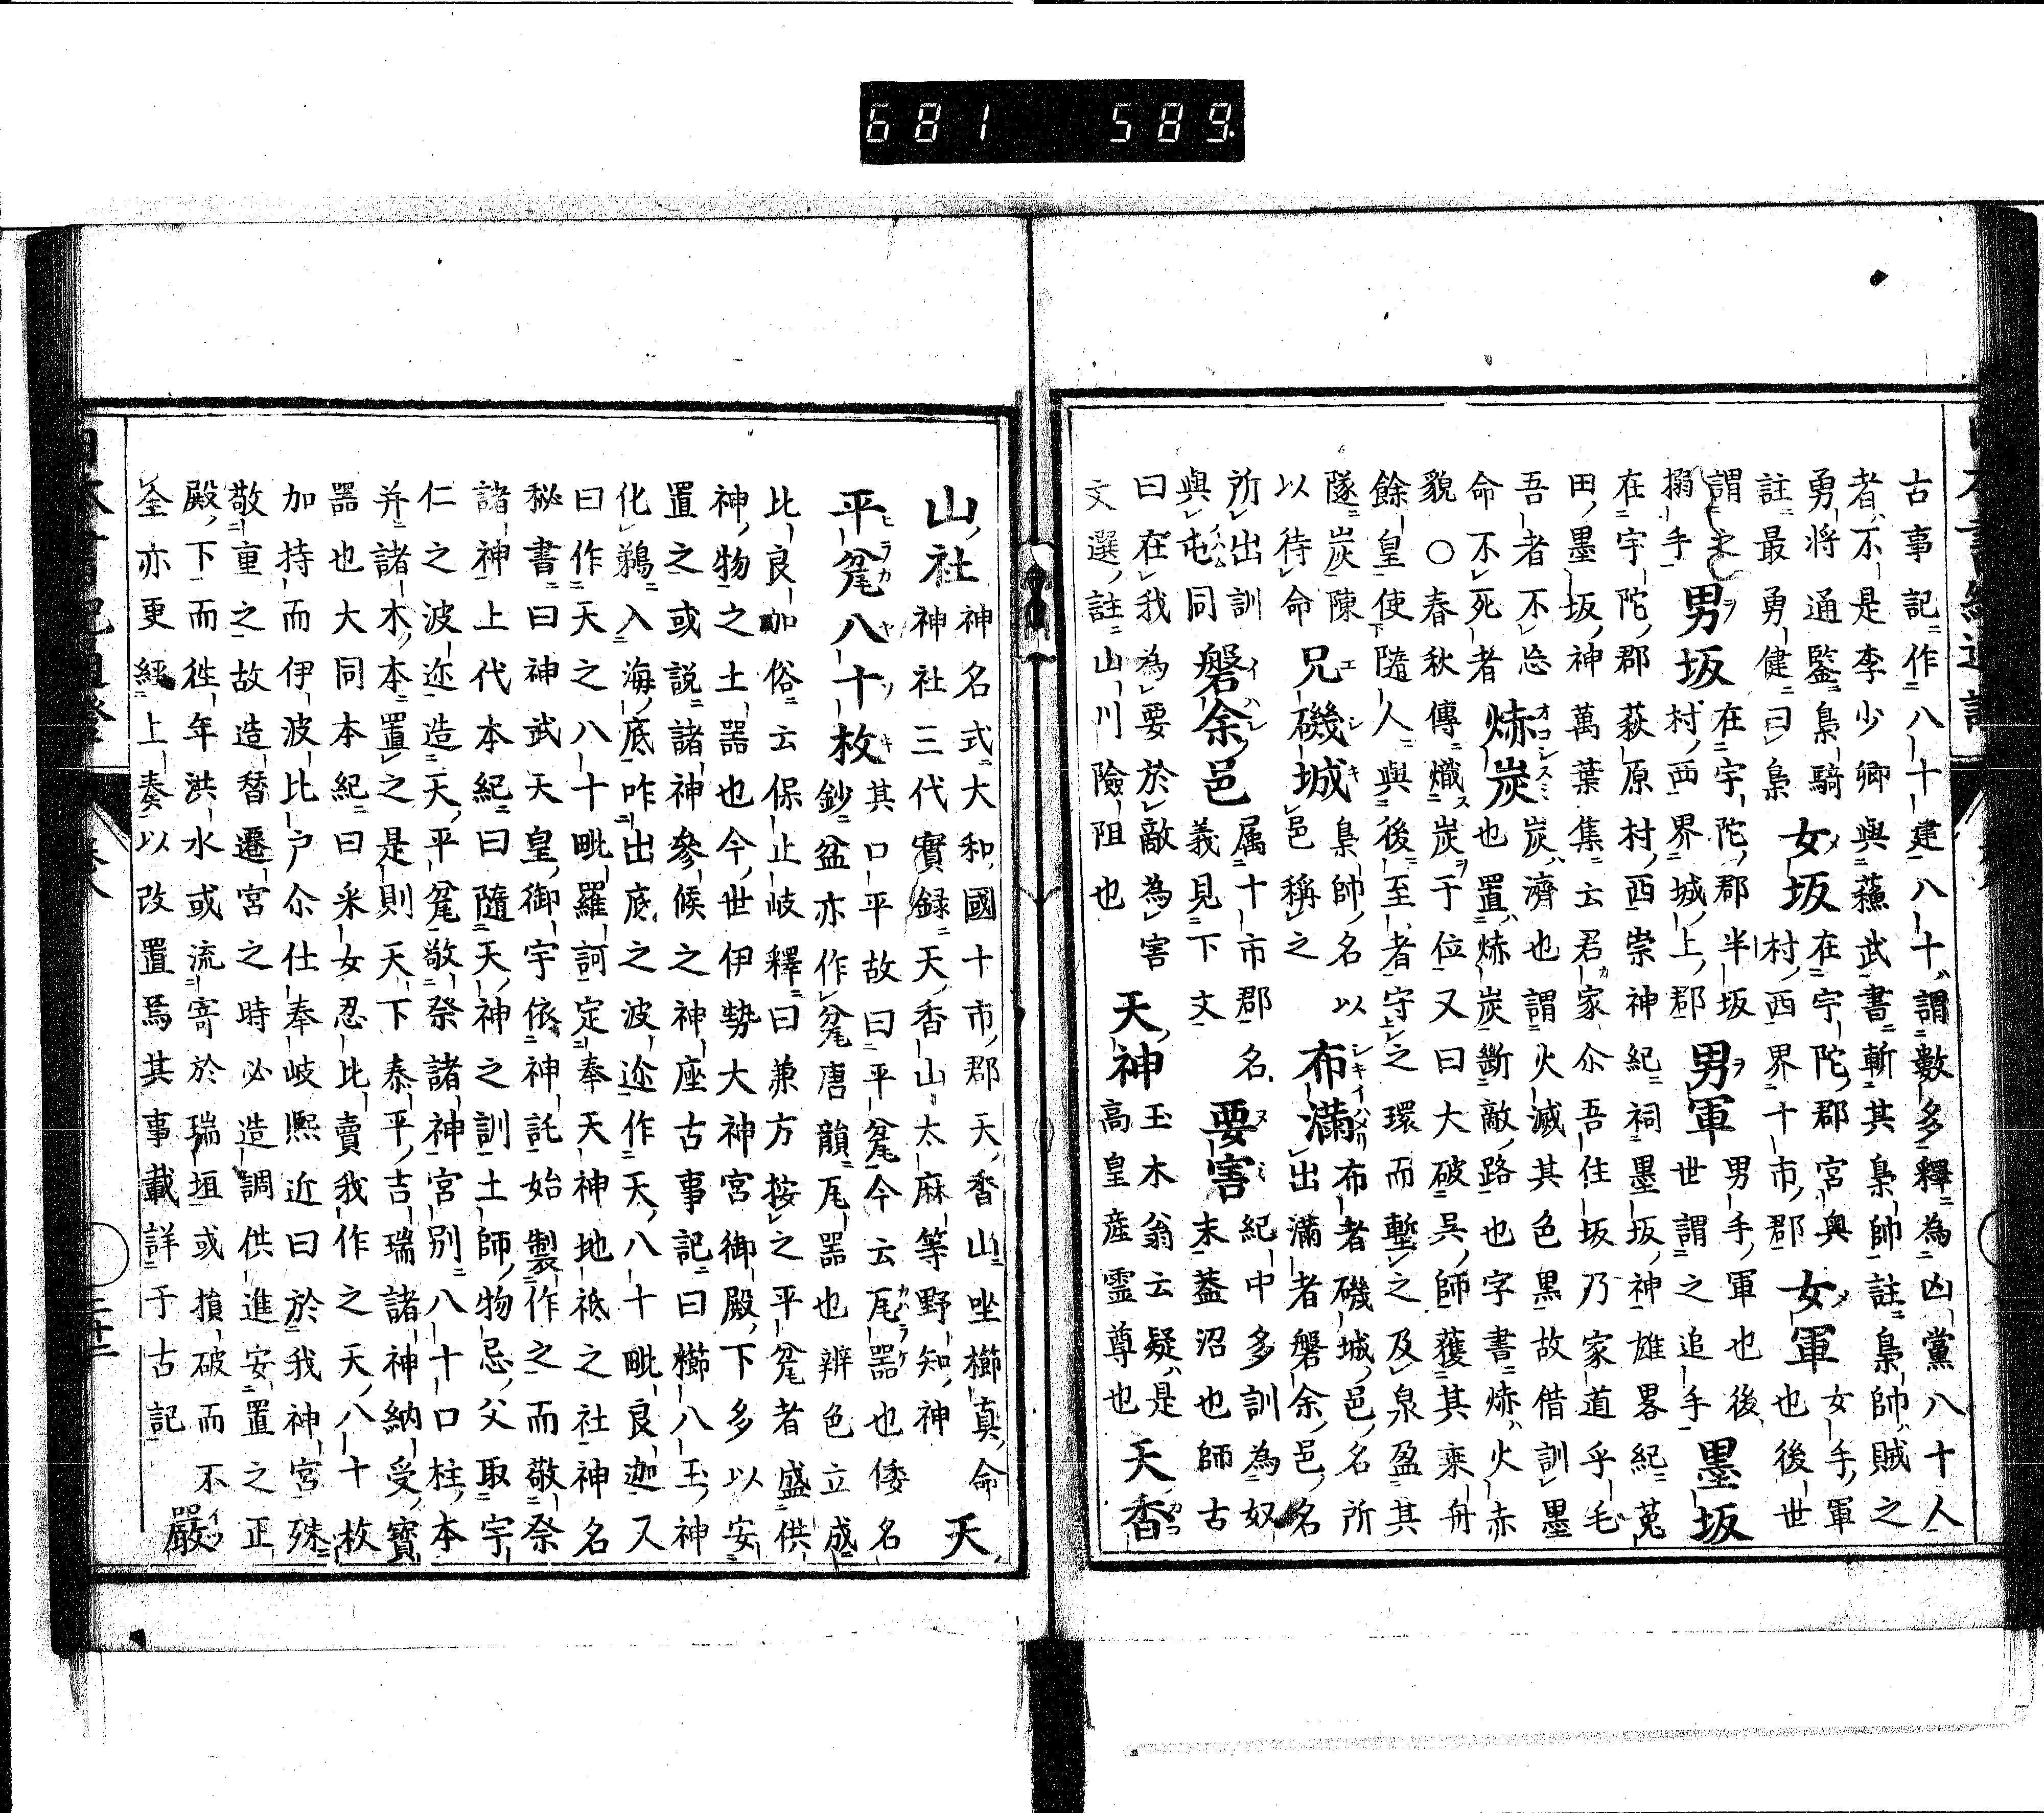 古事記作八十建八十謂數多釋為凶黨八十人
者不是李少卿與蘇武書斬其梟帥註梟帥賊之
勇將通鑑梟騎
註最勇健曰梟
女坂
在宇陀郡宮奧
村西界十市郡
女軍
女手軍
也後世
謂之
搦手
男坂
在宇陀郡半坂
村西界城上郡
男軍
男手軍也後
世謂之追手
墨坂
在宇陀郡萩原村西崇神紀祠墨坂神雄畧紀菟
田墨坂神萬葉集云君家尒吾住坂乃家道乎毛
吾者不忘
命不死者
焃炭
炭濟也謂火滅其色黒故借訓墨
也置焃炭斷敵路也字書焃火赤
貌○春秋傳熾炭于位又曰大破呉師獲其乗舟
餘皇使隨人與後至者守之環而塹之及泉盈其
隧炭陳
以待命
兄磯城
梟帥名以
邑稱之
布滿
布者磯城邑名所
出滿者磐余邑名
所出訓
與屯同
磐余邑
属十市郡名
義見下文
要害
紀中多訓為奴
末蓋沼也師古
曰在我為要於敵為害
文選註山川險阻也
天神
玉木翁云疑是
高皇産霊尊也
天香
山社
神名式大和國十市郡天香山坐櫛真命
神社三代實録天香山太麻等野知神
天
平瓫八十枚
其口平故曰平瓫今云瓦器也倭名
鈔盆亦作瓫唐韻瓦器也辨色立成
比良加俗云保止岐釋曰兼方按之平瓫者盛供
神物之土器也今世伊勢大神宮御殿下多以安
置之或説諸神參候之神座古事記曰櫛八玉神
化鵜入海底咋出底之波迩作天八十毗良迦又
曰作天之八十毗羅訶定奉天神地祇之社神名
秘書曰神武天皇御宇依神託始製作之而敬祭
諸神上代本紀曰隨天神之訓土師物忌父取宇
仁之波迩造天平瓫敬祭諸神宮別八十口柱本
并諸木本置之是則天下泰平吉瑞諸神納受寳
器也大同本紀曰采女忍比賣我作之天八十枚
加持而伊波比戸尒仕奉岐熙近曰於我神宮殊
敬重之故造替遷宮之時必造調供進安置之正
殿下而徃年洪水或流寄於瑞垣或損破而不
全亦更經上奏以改置焉其事載詳于古記
嚴